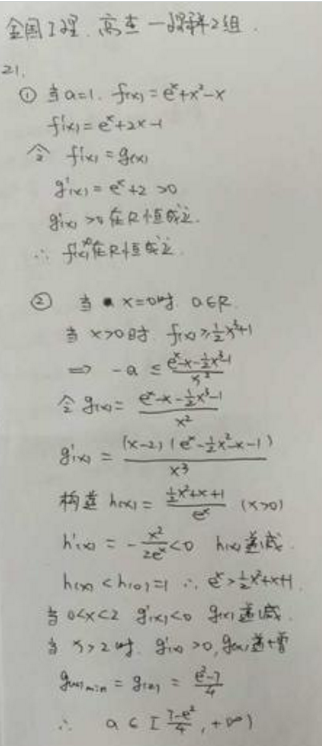 全国I理. 高杰一课群2组.
21.
① 当a=1. f(x)=e^x+x²-x
f'(x)=e^x+2x-1
令 f'(x)=g(x)
g'(x)=e^x+2>0
g'(x)>0在R恒成立.
∴ f'(x)在R恒成立.
② 当 x=0时. a∈R.
当 x>0时 f(x)≥½x³+1
⇒ -a≤(e^x-x-½x³-1)/x²
令g(x)=(e^x-x-½x³-1)/x²
g'(x)=(x-2)(e^x-½x²-x-1)/x³
构造 h(x)=(½x²+x+1)/e^x (x>0)
h'(x)=-x²/2e^x<0 h(x)递减.
h(x)<h(0)=1 ∴ e^x>½x²+x+1.
当 0<x<2 g'(x)<0 g(x)递减.
当 x>2时. g'(x)>0, g(x)递增
g(x)min=g(2)=(e²-7)/4
∴ a∈[(7-e²)/4, +∞)